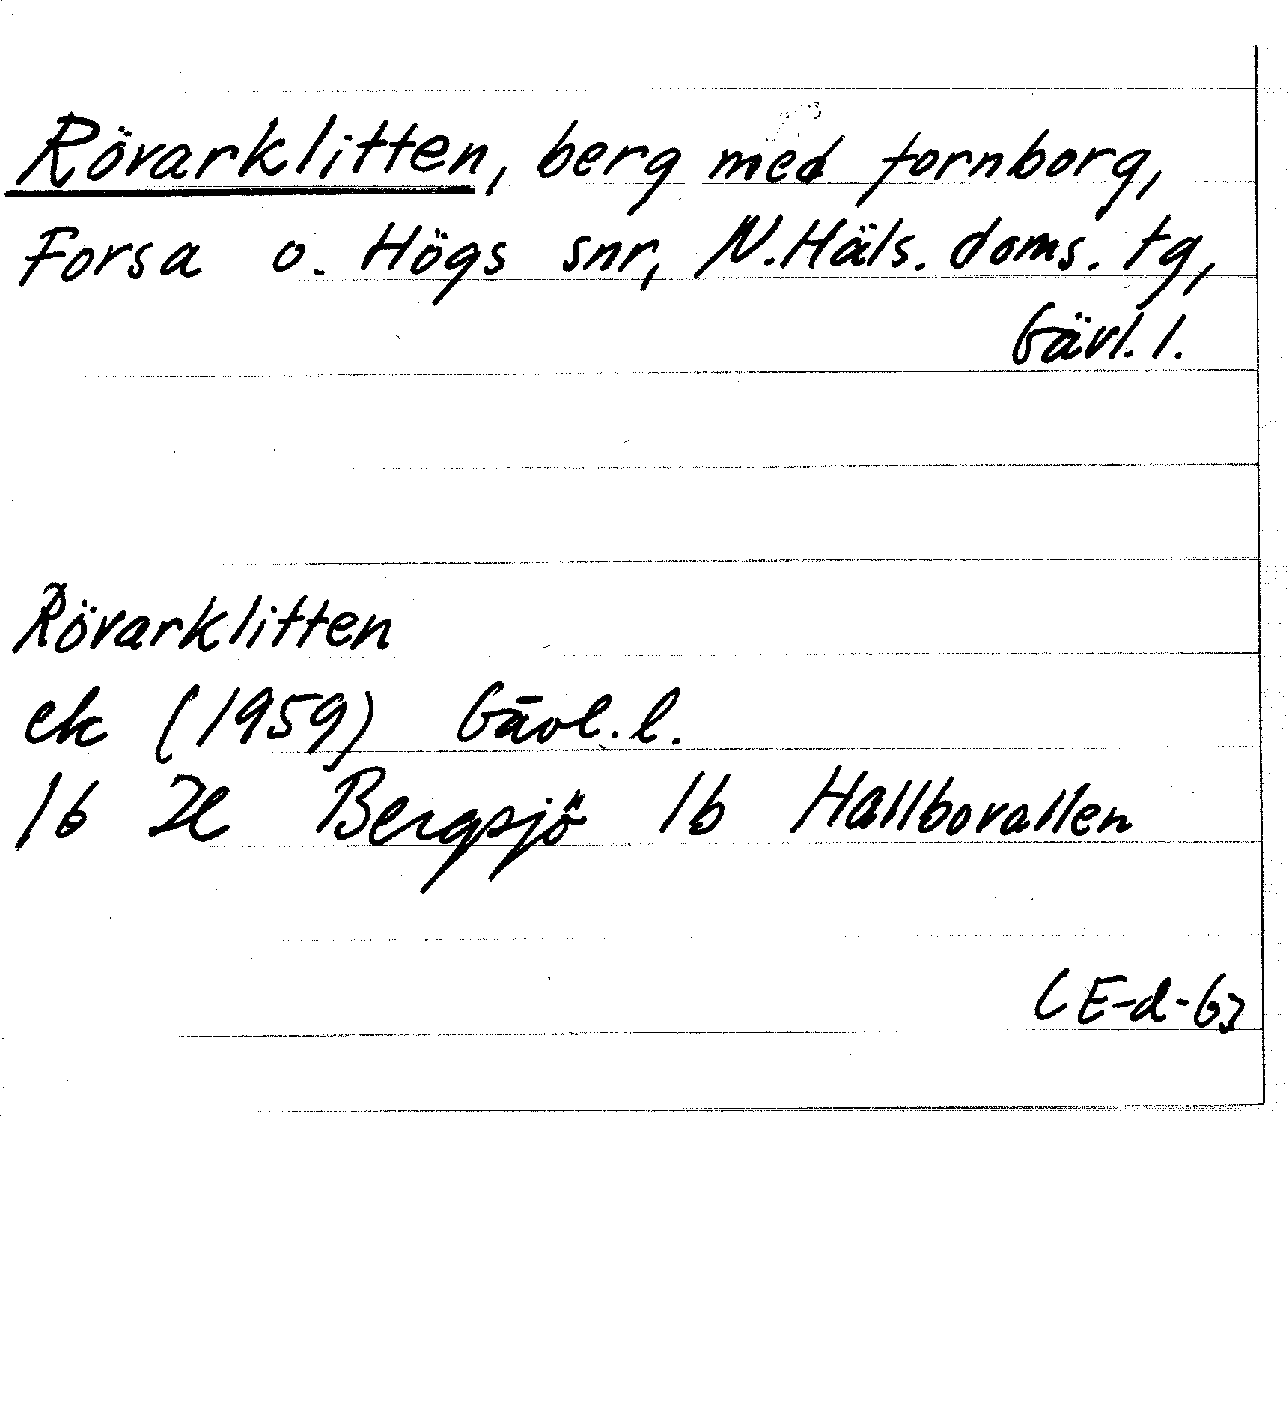 Rövarklitten, berg med fornborg,
Forsa o. Högs snr, N.Häls. doms. tg,
Gävl. l.
Rövarklitten
ek (1959) Gävl. l.
16 H Bergsjö 1b Hallbovallen
CE-d-63